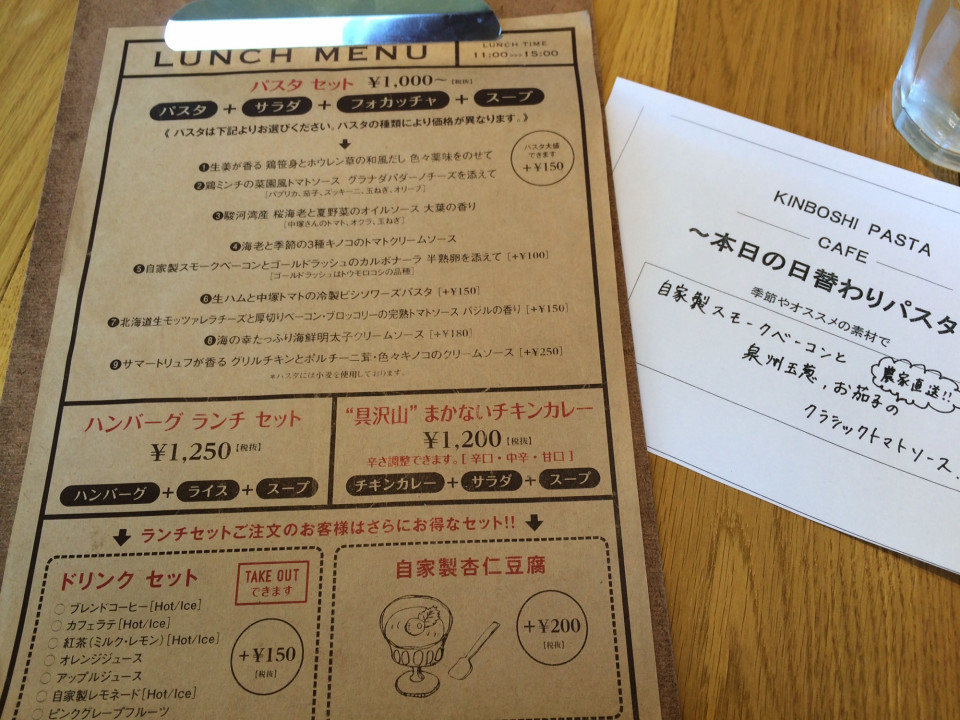 LUNCH MENU
LUNCH TIME
11:00 15:00
パスタ セット ¥1,000～[税抜]
パスタ + サラダ + フォカッチャ + スープ
《 パスタは下記よりお選びください。パスタの種類により価格が異なります。》
パスタ大盛
できます
+¥150
❶生姜が香る 鶏笹身とホウレン草の和風だし 色々薬味をのせて
❷鶏ミンチの菜園風トマトソース グラナダパダーノチーズを添えて
[パプリカ、茄子、ズッキーニ、玉ねぎ、オリーブ]
❸駿河湾産 桜海老と夏野菜のオイルソース 大葉の香り
[中塚さんのトマト、オクラ、玉ねぎ]
❹海老と季節の3種キノコのトマトクリームソース
❺自家製スモークベーコンとゴールドラッシュのカルボナーラ 半熟卵を添えて [+¥100]
[ゴールドラッシュはトウモロコシの品種]
❻生ハムと中塚トマトの冷製ビシソワーズパスタ [+¥150]
❼北海道生モッツァレラチーズと厚切りベーコン・ブロッコリーの完熟トマトソース バジルの香り [+¥150]
❽海の幸たっぷり海鮮明太子クリームソース [+¥180]
❾サマートリュフが香る グリルチキンとポルチーニ茸・色々キノコのクリームソース [+¥250]
※パスタには小麦を使用しております。
ハンバーグ ランチ セット
¥1,250[税抜]
ハンバーグ + ライス + スープ
“具沢山” まかないチキンカレー
¥1,200[税抜]
辛さ調整できます。[ 辛口・中辛・甘口 ]
チキンカレー + サラダ + スープ
ランチセットご注文のお客様はさらにお得なセット!!
ドリンク セット
TAKE OUT
できます
○ ブレンドコーヒー[Hot/Ice]
○ カフェラテ[Hot/Ice]
○ 紅茶(ミルク・レモン)[Hot/Ice]
○ オレンジジュース
○ アップルジュース
○ 自家製レモネード[Hot/Ice]
○ ピンクグレープフルーツ
+¥150
[税抜]
自家製杏仁豆腐
+¥200
[税抜]
KINBOSHI PASTA
CAFE
～本日の日替わりパスタ
季節やオススメの素材で
自家製スモークベーコンと
農家直送!!
泉州玉葱，お茄子の
クラシックトマトソース.